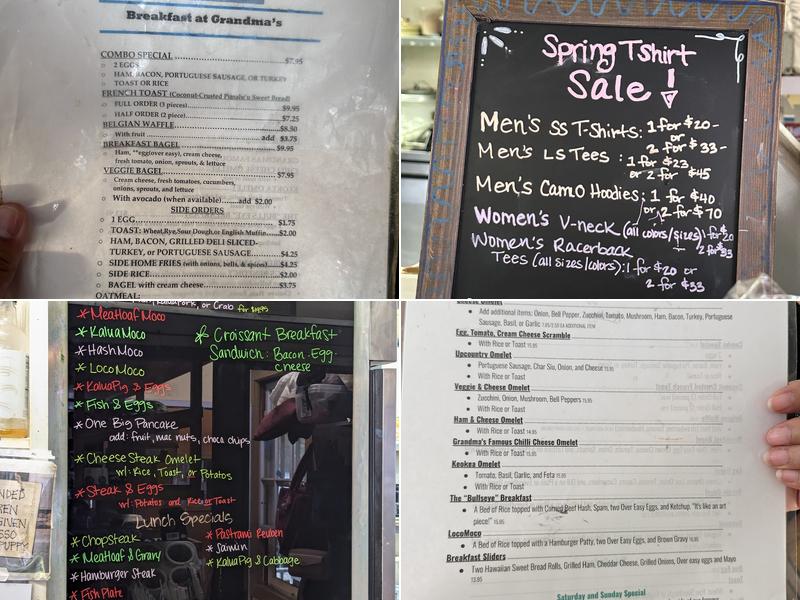 Breakfast at Grandma's
COMBO SPECIAL.......$7.95
2 EGGS
HAM, BACON, PORTUGUESE SAUSAGE, OR TURKEY
TOAST OR RICE
FRENCH TOAST (Coconut-Crusted Punalu'u Sweet Bread)
FULL ORDER (3 pieces).......$9.95
HALF ORDER (2 piece).......$7.25
BELGIAN WAFFLE.......$8.50
With fruit ....... add $3.75
BREAKFAST BAGEL.......$9.95
Ham, **egg(over easy), cream cheese,
fresh tomato, onion, sprouts, & lettuce
VEGGIE BAGEL.......$7.95
Cream cheese, fresh tomatoes, cucumbers,
onions, sprouts, and lettuce
With avocado (when available).......add $2.00
SIDE ORDERS
1 EGG.......$1.75
TOAST: Wheat,Rye,Sour Dough,or English Muffin.......$2.00
HAM, BACON, GRILLED DELI SLICED-
TURKEY, or PORTUGUESE SAUSAGE.......$4.25
SIDE HOME FRIES (with onions, bells, & spices)....$4.25
SIDE RICE.......$2.00
BAGEL with cream cheese.......$3.75
OATMEAL:
Spring Tshirt
Sale
Men's SS T-Shirts: 1 for $20-
or
2 for $33-
Men's LS Tees: 1 for $23
or 2 for $45
Men's Camo Hoodies: 1 for $40
or 2 for $70
Women's V-neck (all colors/sizes) 1 for $20
2 for $33
Women's Racerback
Tees (all sizes/colors): 1 for $20 or
2 for $33
Pork, or Crab
* Meatloaf Moco
* Kalua Moco
* Hash Moco
* Loco Moco
* Kalua Pig & Eggs
* Fish & Eggs
* One Big Pancake
add: fruit, mac nuts, choco chips
* Cheese Steak Omelet
w/ Rice, Toast, or Potatos
* Steak & Eggs
w/ Potatos and Rice or Toast
* Croissant Breakfast
Sandwich: Bacon-Egg-
cheese
Lunch Specials
* Chopsteak
* Meatloaf & Gravy
* Hamburger Steak
* Fish Plate
* Pastrami Reuben
* Saimin
* Kalua Pig & Cabbage
Cheese Omelet
Add additional items: Onion, Bell Pepper, Zucchini, Tomato, Mushroom, Ham, Bacon, Turkey, Portuguese
Sausage, Basil, or Garlic
Egg, Tomato, Cream Cheese Scramble
With Rice or Toast 15.95
Upcountry Omelet
Portuguese Sausage, Char Siu, Onion, and Cheese 15.95
With Rice or Toast
Veggie & Cheese Omelet
Zucchini, Onion, Mushroom, Bell Peppers 15.95
With Rice or Toast
Ham & Cheese Omelet
With Rice or Toast 14.95
Grandma's Famous Chilli Cheese Omelet
With Rice or Toast 15.95
Keokea Omelet
Tomato, Basil, Garlic, and Feta 15.95
With Rice or Toast
The "Bullseye" Breakfast
A Bed of Rice topped with Corned Beef Hash, Spam, two Over Easy Eggs, and Ketchup. "It's like an art
piece!" 15.95
LocoMoco
A Bed of Rice topped with a Hamburger Patty, two Over Easy Eggs, and Brown Gravy
Breakfast Sliders
Two Hawaiian Sweet Bread Rolls, Grilled Ham, Cheddar Cheese, Grilled Onions, Over easy eggs and Mayo
13.95
Saturday and Sunday Special